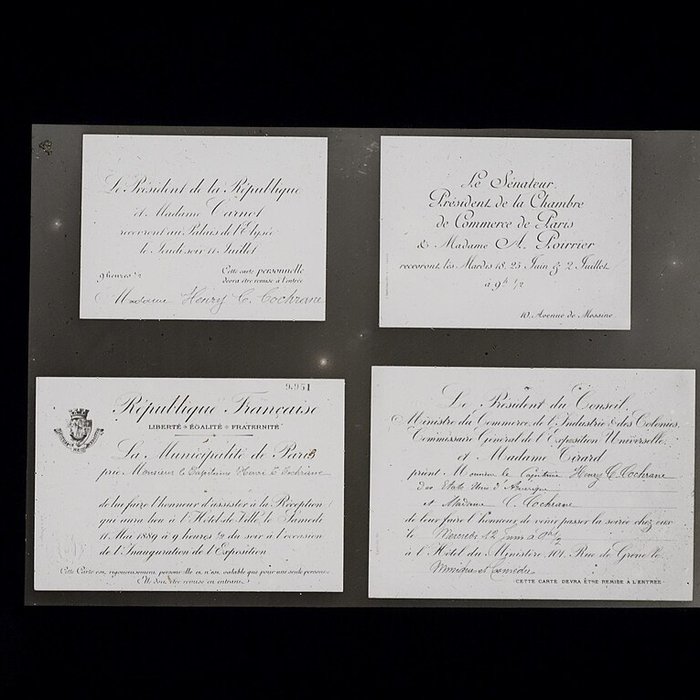 Le Président de la République
et Madame Carnot
recevront au Palais de l'Elysée
le Jeudi soir 11 Juillet
9 heures 1/2
Cette carte personnelle
devra être remise à l'entrée
Madame Henry C. Cochrane
Le Sénateur,
Président de la Chambre
de Commerce de Paris
& Madame A. Poirrier
recevront les Mardis 18, 25 Juin & 2 Juillet
à 9h 1/2
10, Avenue de Messine
9.951
République Française
LIBERTÉ * ÉGALITÉ * FRATERNITÉ
La Municipalité de Paris
prie Monsieur le Capitaine
de lui faire l'honneur d'assister à la Réception
qui aura lieu à l'Hôtel de Ville, le Samedi
11 Mai 1889 à 9 heures 1/2 du soir à l'occasion
de l'Inauguration de l'Exposition
(Cette Carte est rigoureusement personnelle et n'est valable que pour une seule personne
(Elle doit être remise en entrant.)
Le Président du Conseil,
Ministre du Commerce de l'Industrie & des Colonies,
Commissaire Général de l'Exposition Universelle
et Madame Tirard
prient Monsieur le Capitaine Henry C. Cochrane
des Etats Unis d'Amerique
et Madame C. Cochrane
de leur faire l'honneur de venir passer la soirée chez eux
le Mercredi 12 Juin à 9h 1/2
à l'Hôtel du Ministère 101, Rue de Grenelle
Musique et Comédie
CETTE CARTE DEVRA ÊTRE REMISE À L'ENTRÉE